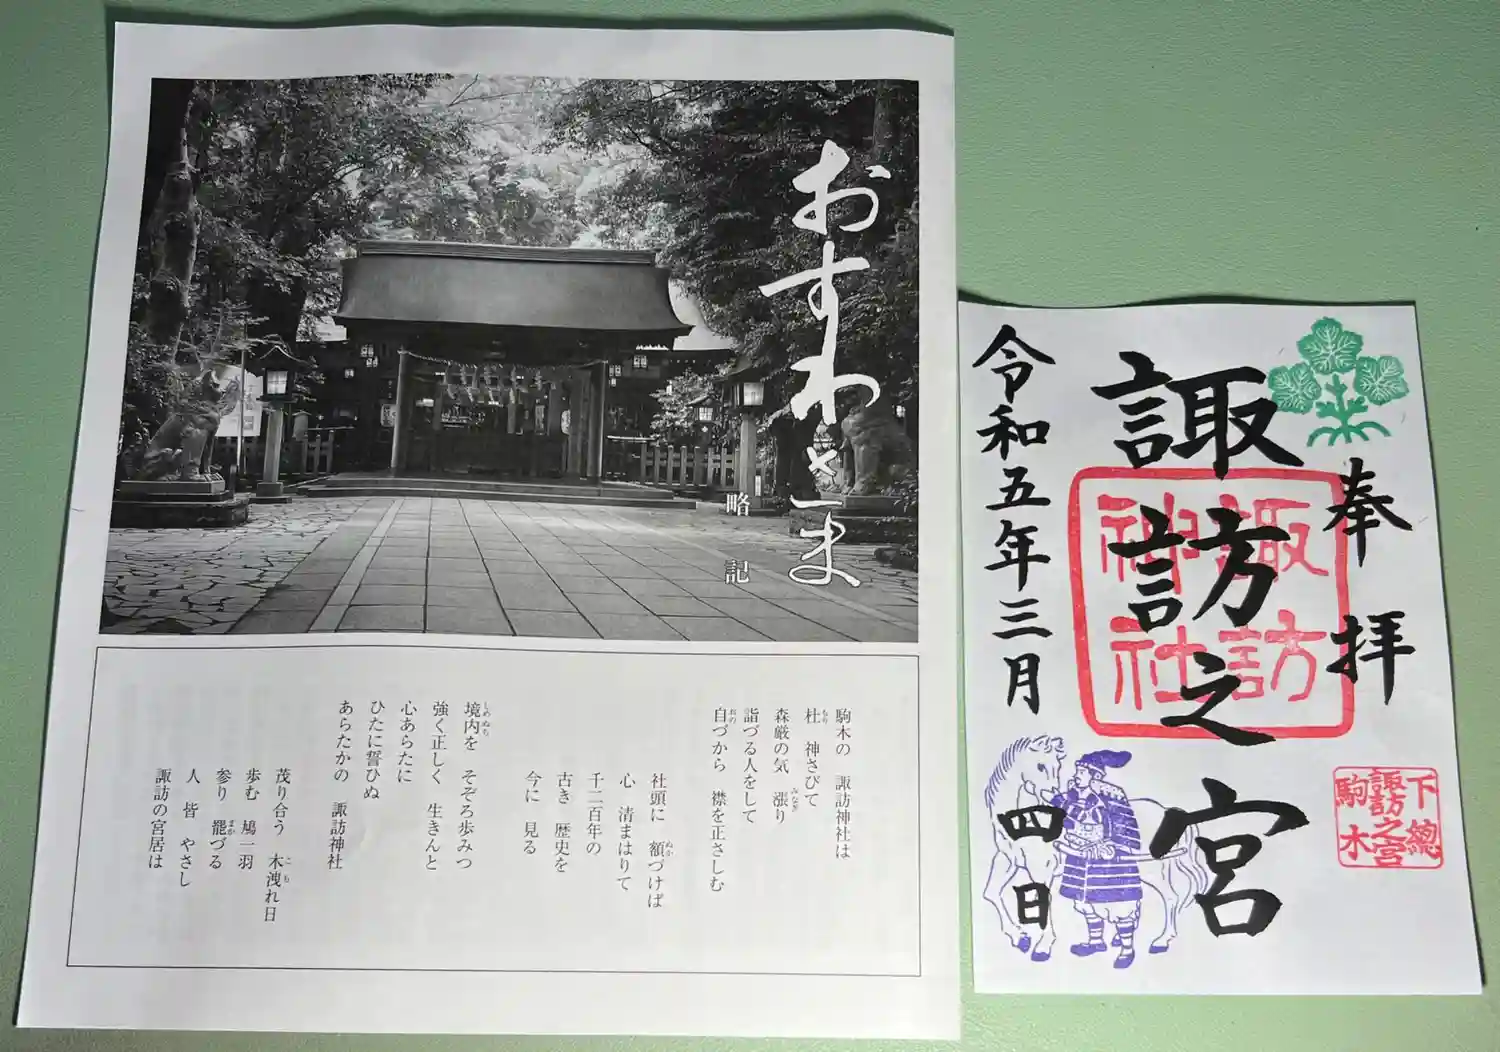 おすわさま
略記
駒木の 諏訪神社は
杜 神さびて
もり
森厳の気 漲り
みなぎ
詣づる人をして
自づから 襟を正さしむ
おの
社頭に 額づけば
ぬか
心 清まはりて
千二百年の
古き 歴史を
今に 見る
境内を そぞろ歩みつ
しめぬち
強く正しく 生きんと
心あらたに
ひたに誓ひぬ
あらたかの 諏訪神社
茂り合う 木洩れ日
こも
歩む 鳩一羽
参り 罷づる
まか
人 皆 やさし
諏訪の宮居は
奉拝
諏訪之宮
諏訪
神社
下總
諏訪之宮
駒木
令和五年三月四日